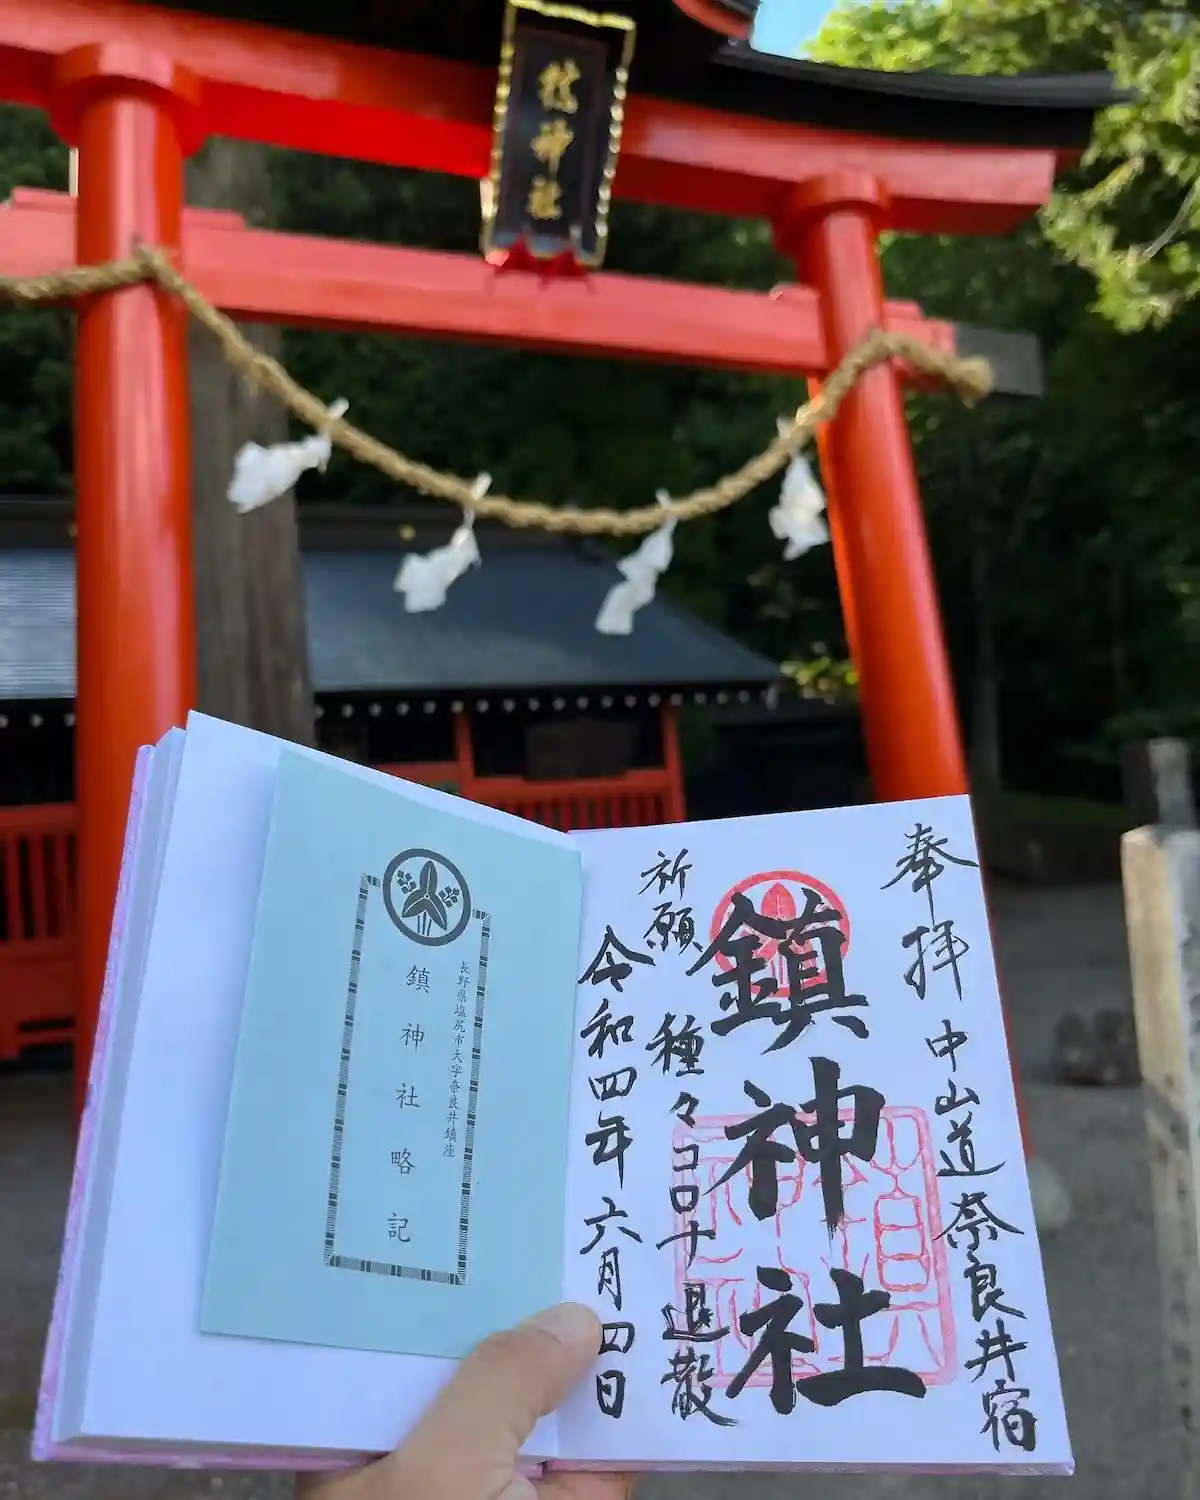 鎮神社
奉拝 中山道奈良井宿
鎮神社
祈願 種々コロナ退散
令和四年六月四日
長野県塩尻市大字奈良井鎮座
鎮神社略記